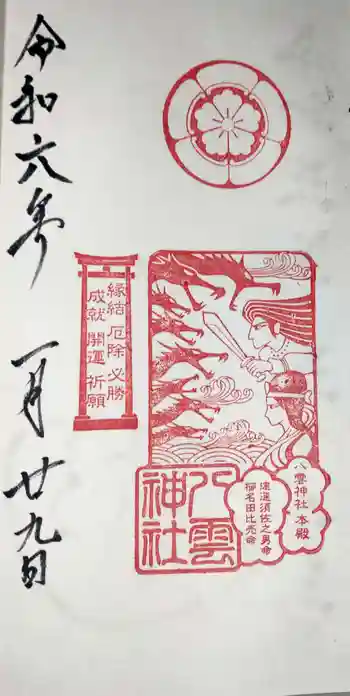 八雲神社本殿
速進須佐之男命
櫛名田比売命
八雲
神社
縁結 厄除 必勝
成就 開運 祈願
令和六年 一月廿九日